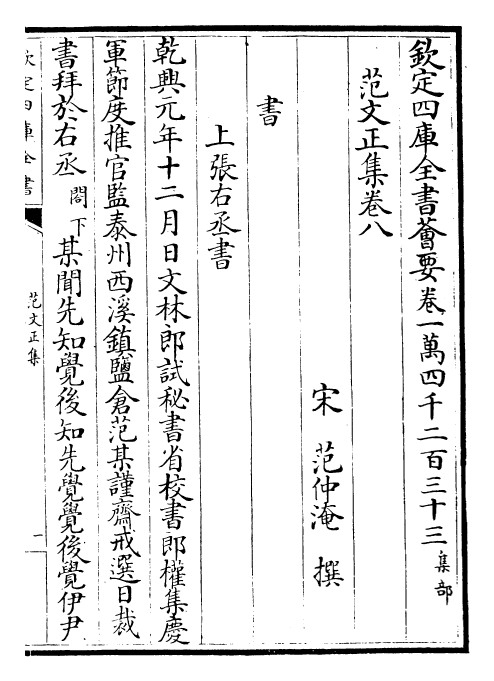 欽定四庫全書薈要卷一萬四千二百三十三 集部
范文正集卷八
宋 范仲淹 撰
書
上張右丞書
乾興元年十二月日文林郎試秘書省校書郎權集慶
軍節度推官監泰州西溪鎮鹽倉范某謹齋戒選日裁
書拜於右丞閤下某聞先知覺後知先覺覺後覺伊尹
欽定四庫全書
范文正集
一